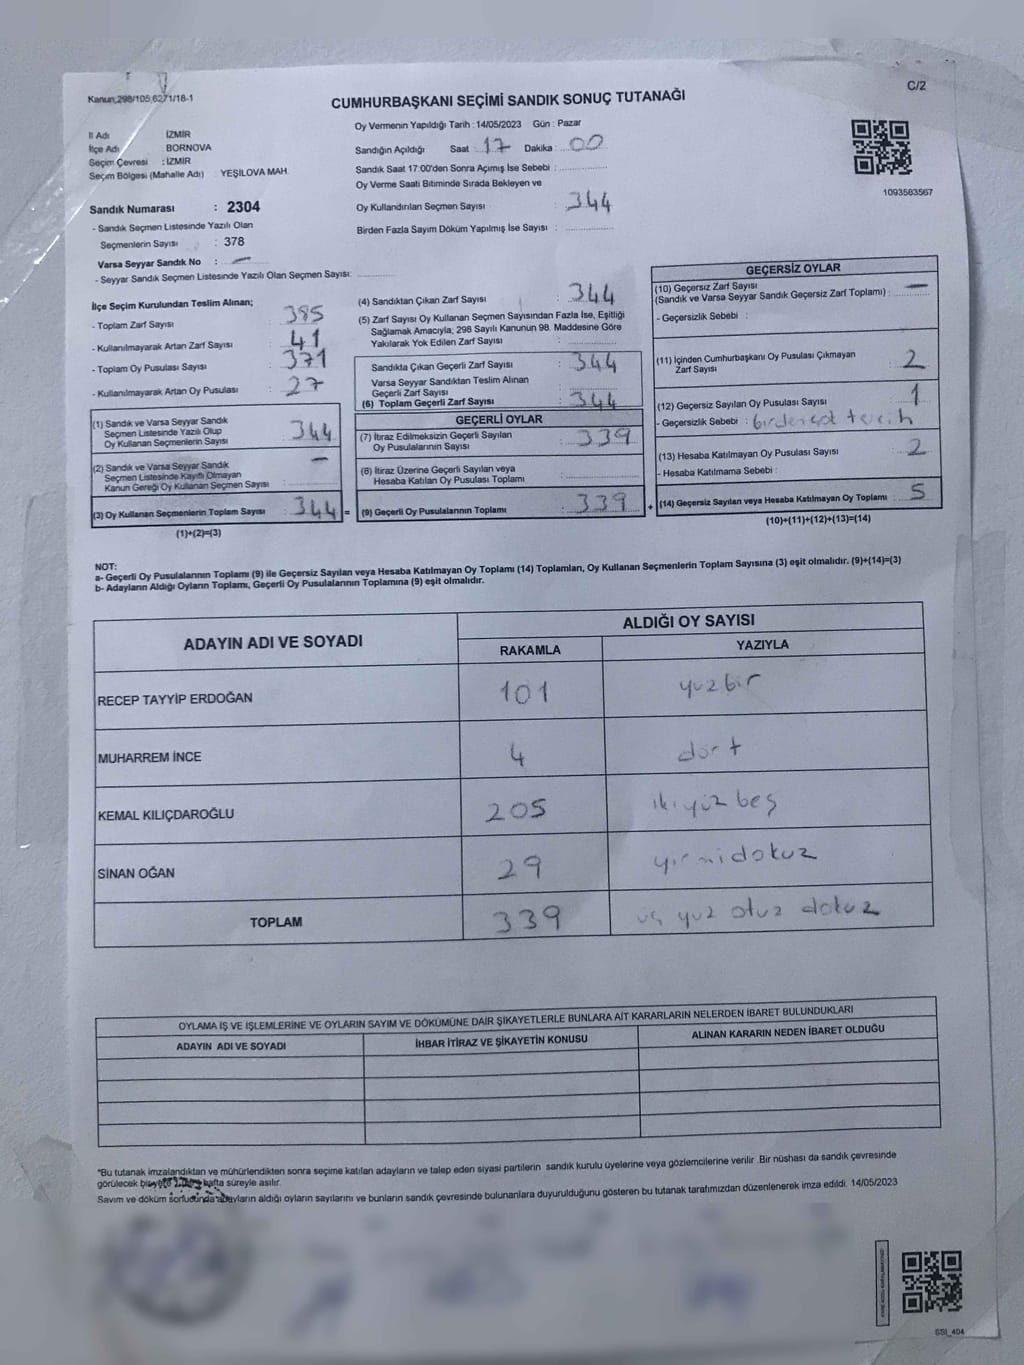 Kanun;298/105,6271/18-1
C/2
CUMHURBAŞKANI SEÇİMİ SANDIK SONUÇ TUTANAĞI
Oy Vermenin Yapıldığı Tarih : 14/05/2023 Gün : Pazar
İl Adı İZMİR
İlçe Adı BORNOVA
Seçim Çevresi : İZMİR
Seçim Bölgesi (Mahalle Adı) YEŞİLOVA MAH.
Sandığın Açıldığı Saat : 17 Dakika : 00
Sandık Saat 17:00'den Sonra Açımış İse Sebebi :
Oy Verme Saati Bitiminde Sırada Bekleyen ve
Oy Kullandırılan Seçmen Sayısı : 344
Birden Fazla Sayım Döküm Yapılmış İse Sayısı :
1093563567
Sandık Numarası : 2304
- Sandık Seçmen Listesinde Yazılı Olan
Seçmenlerin Sayısı : 378
Varsa Seyyar Sandık No : —
- Seyyar Sandık Seçmen Listesinde Yazılı Olan Seçmen Sayısı:
İlçe Seçim Kurulundan Teslim Alınan;
- Toplam Zarf Sayısı : 385
- Kullanılmayarak Artan Zarf Sayısı : 41
- Toplam Oy Pusulası Sayısı : 371
- Kullanılmayarak Artan Oy Pusulası : 27
(1) Sandık ve Varsa Seyyar Sandık
Seçmen Listesinde Yazılı Olup
Oy Kullanan Seçmenlerin Sayısı : 344
(2) Sandık ve Varsa Seyyar Sandık
Seçmen Listesinde Kayıtlı Olmayan
Kanun Gereği Oy Kullanan Seçmen Sayısı : —
(3) Oy Kullanan Seçmenlerin Toplam Sayısı : 344 =
(1)+(2)=(3)
(4) Sandıktan Çıkan Zarf Sayısı : 344
(5) Zarf Sayısı Oy Kullanan Seçmen Sayısından Fazla İse, Eşitliği
Sağlamak Amacıyla; 298 Sayılı Kanunun 98. Maddesine Göre
Yakılarak Yok Edilen Zarf Sayısı :
Sandıkta Çıkan Geçerli Zarf Sayısı : 344
Varsa Seyyar Sandıktan Teslim Alınan
Geçerli Zarf Sayısı :
(6) Toplam Geçerli Zarf Sayısı : 344
GEÇERLİ OYLAR
(7) İtiraz Edilmeksizin Geçerli Sayılan
Oy Pusulalarının Sayısı : 339
(8) İtiraz Üzerine Geçerli Sayılan veya
Hesaba Katılan Oy Pusulası Toplamı :
(9) Geçerli Oy Pusulalarının Toplamı : 339 +
GEÇERSİZ OYLAR
(10) Geçersiz Zarf Sayısı
(Sandık ve Varsa Seyyar Sandık Geçersiz Zarf Toplamı) : —
- Geçersizlik Sebebi :
(11) İçinden Cumhurbaşkanı Oy Pusulası Çıkmayan
Zarf Sayısı : 2
(12) Geçersiz Sayılan Oy Pusulası Sayısı : 1
- Geçersizlik Sebebi : tercih
(13) Hesaba Katılmayan Oy Pusulası Sayısı : 2
- Hesaba Katılmama Sebebi :
(14) Geçersiz Sayılan veya Hesaba Katılmayan Oy Toplamı : 5
(10)+(11)+(12)+(13)=(14)
NOT:
a- Geçerli Oy Pusulalarının Toplamı (9) ile Geçersiz Sayılan veya Hesaba Katılmayan Oy Toplamı (14) Toplamları, Oy Kullanan Seçmenlerin Toplam Sayısına (3) eşit olmalıdır. (9)+(14)=(3)
b- Adayların Aldığı Oyların Toplamı, Geçerli Oy Pusulalarının Toplamına (9) eşit olmalıdır.
ADAYIN ADI VE SOYADI ALDIĞI OY SAYISI
RAKAMLA YAZIYLA
RECEP TAYYİP ERDOĞAN 101 yüzbir
MUHARREM İNCE 4 dört
KEMAL KILIÇDAROĞLU 205 ikiyüz beş
SİNAN OĞAN 29 yirmidokuz
TOPLAM 339 üç yüz otuz dokuz
OYLAMA İŞ VE İŞLEMLERİNE VE OYLARIN SAYIM VE DÖKÜMÜNE DAİR ŞİKAYETLERLE BUNLARA AİT KARARLARIN NELERDEN İBARET BULUNDUKLARI
ADAYIN ADI VE SOYADI İHBAR İTİRAZ VE ŞİKAYETİN KONUSU ALINAN KARARIN NEDEN İBARET OLDUĞU
*Bu tutanak imzalandıktan ve mühürlendikten sonra seçime katılan adayların ve talep eden siyasi partilerin sandık kurulu üyelerine veya gözlemcilerine verilir .Bir nüshası da sandık çevresinde
görülecek bir hafta süreyle asılır.
Sayım ve döküm adayların aldığı oyların sayılarını ve bunların sandık çevresinde bulunanlara duyurulduğunu gösteren bu tutanak tarafımızdan düzenlenerek imza edildi. 14/05/2023
SSI_404